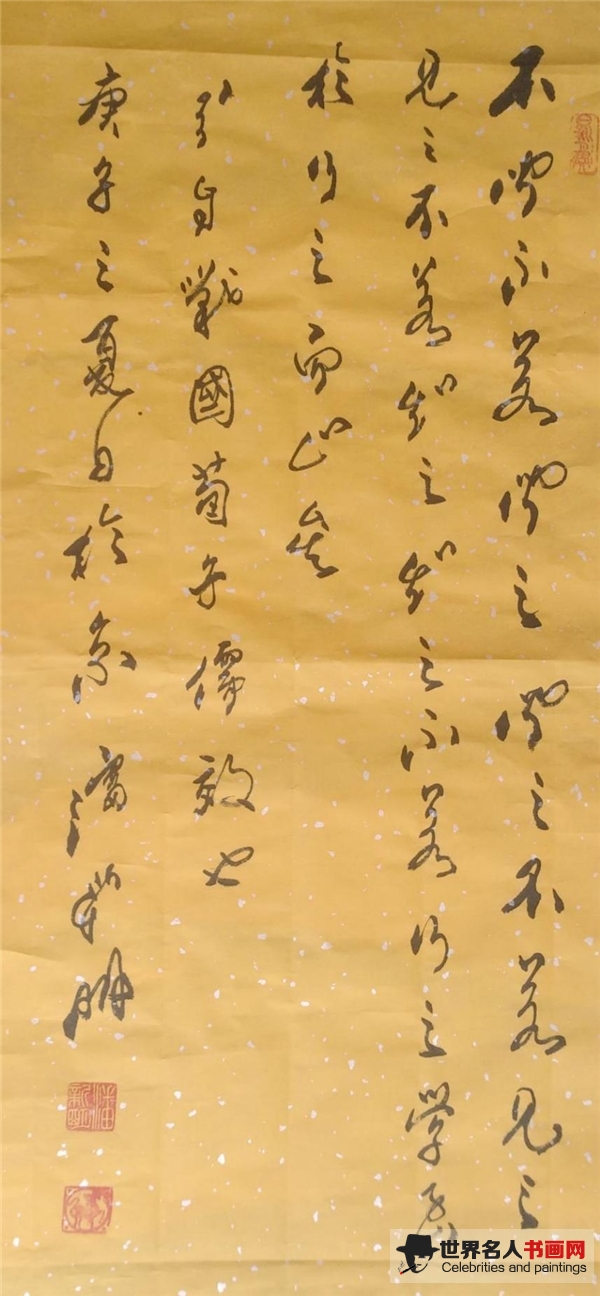 不聞不若聞之聞之不若見之
見之不若知之知之不若行之學至
於行之而止矣
自戰國荀子儒效也
庚子之夏日於京
世界名人书画网
Celebrities and paintings